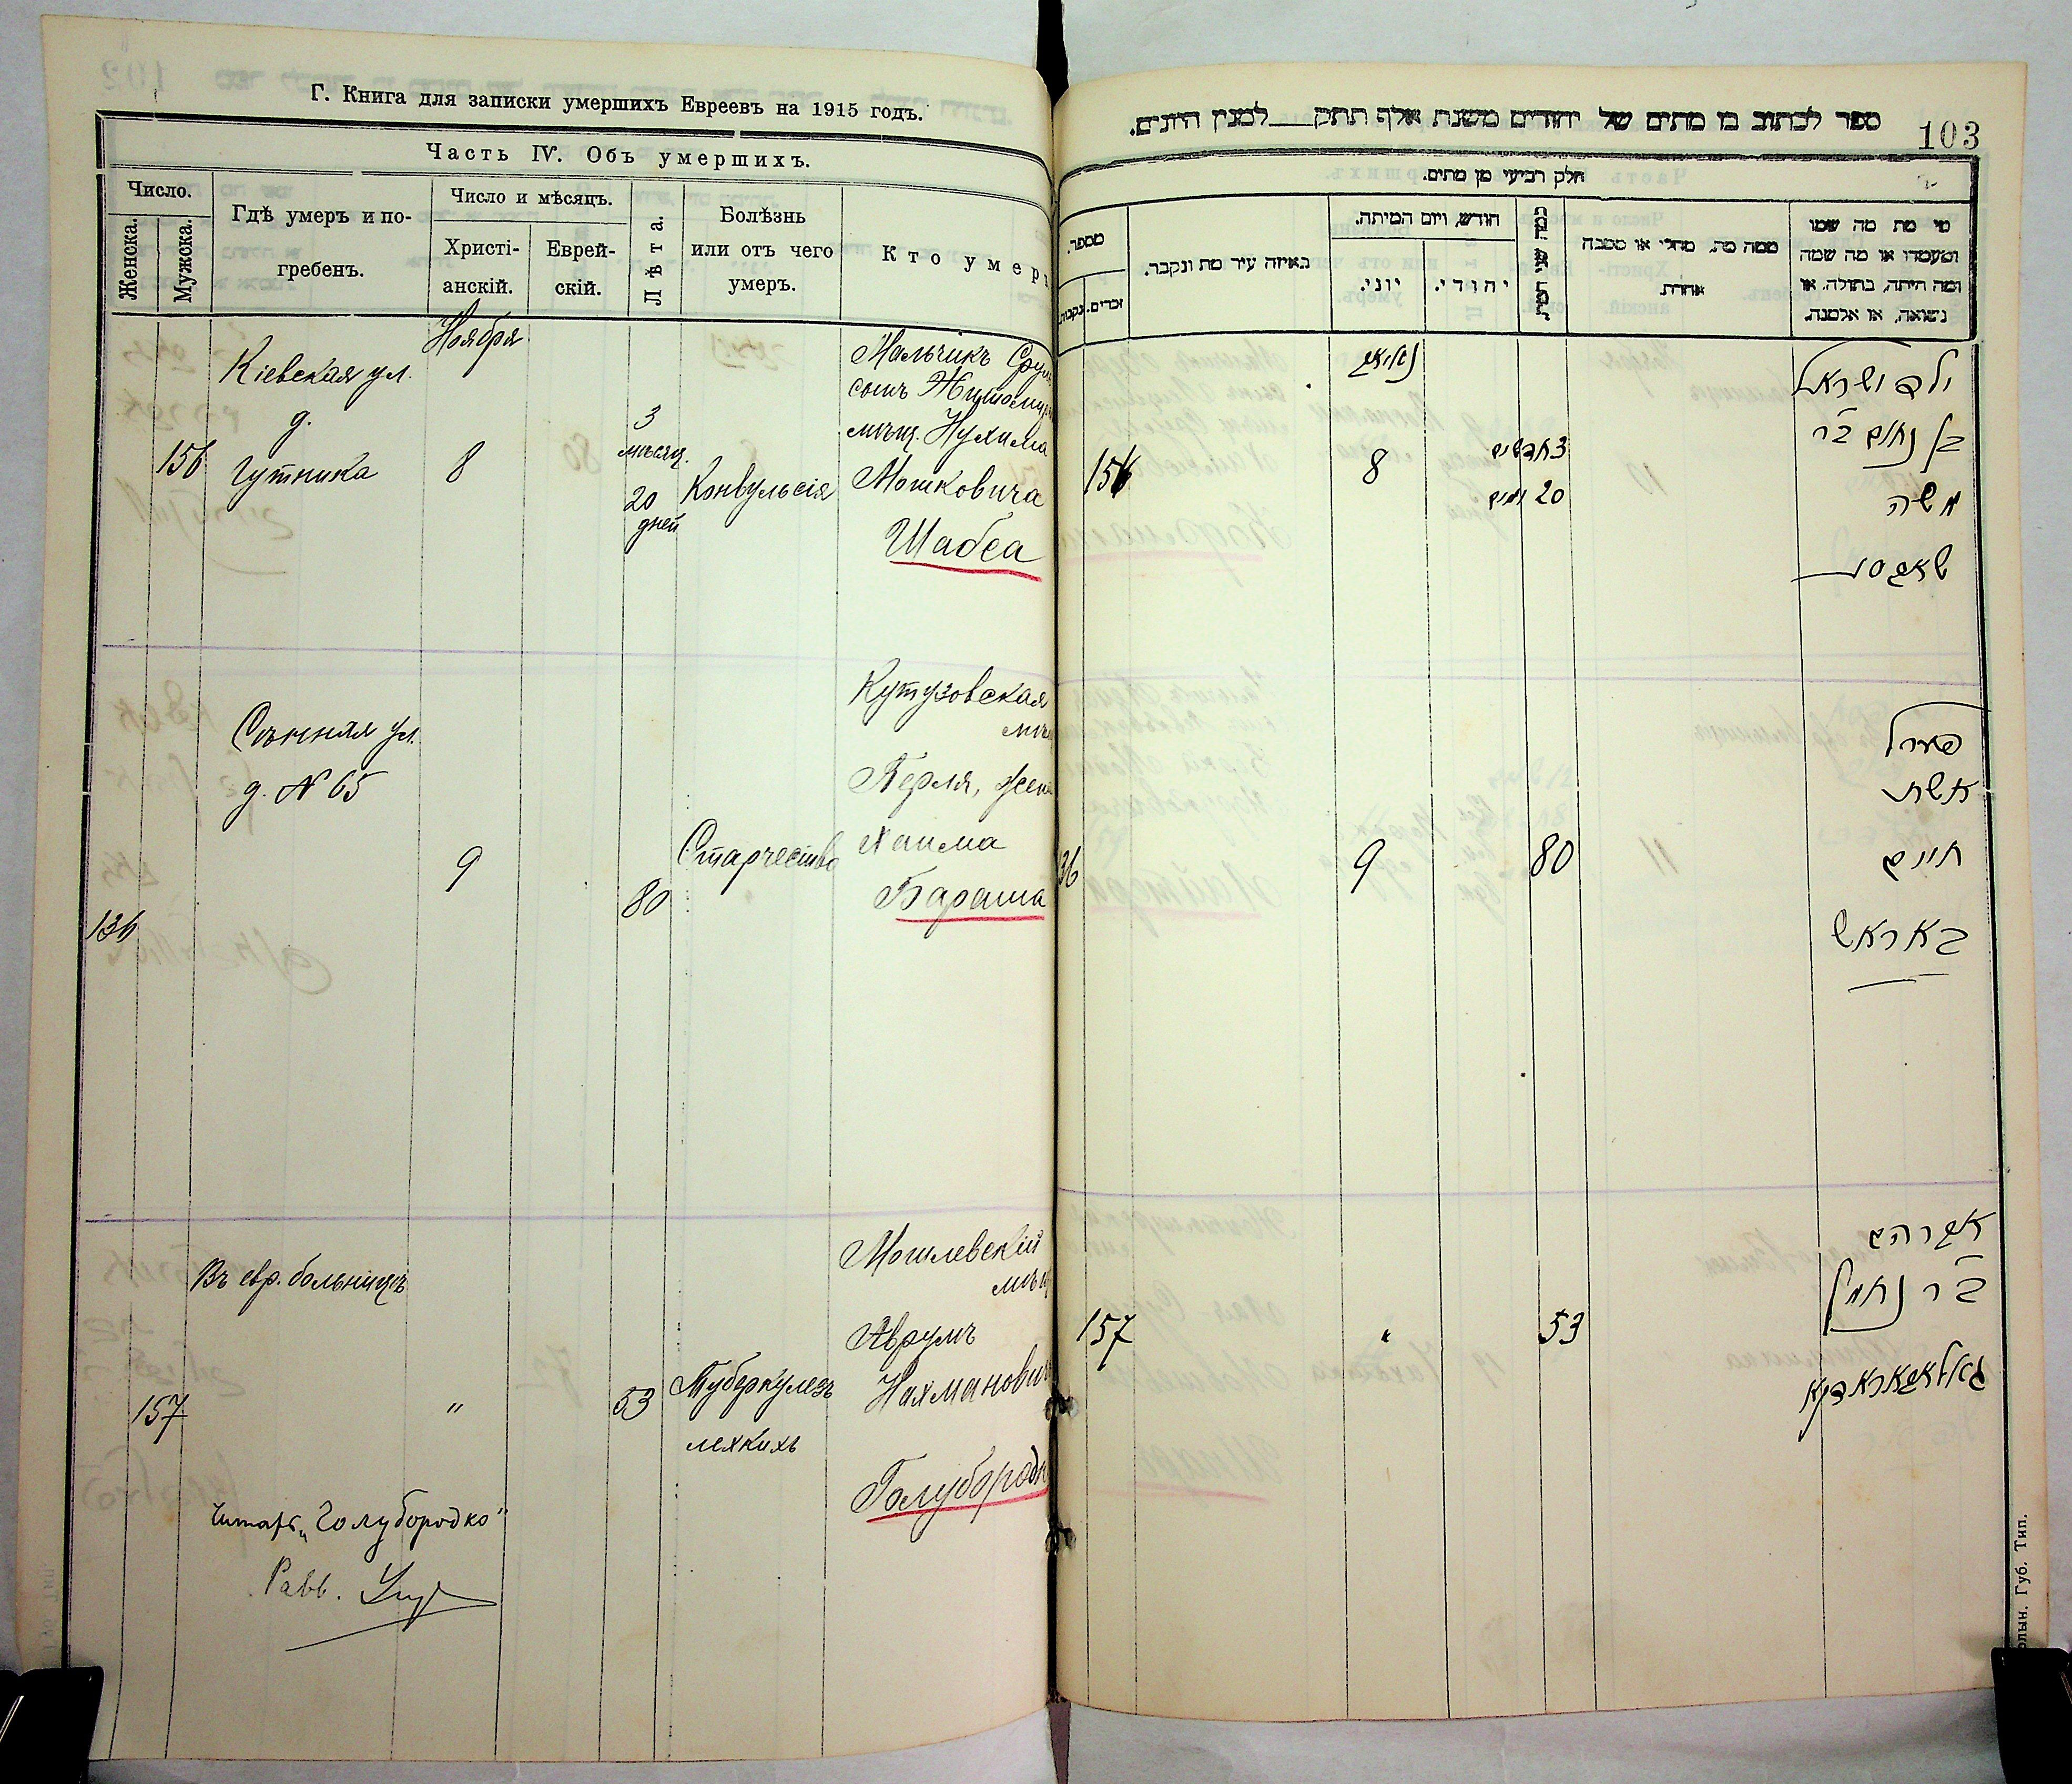 Г. Книга для записки умершихъ Евреевъ на 1915 годъ.
Часть IV. Объ умершихъ.
Число.
Женска.
Мужска.
Гдѣ умеръ и по-
гребенъ.
Число и мѣсяцъ.
Христі-
анскій.
Еврей-
скій.
Лѣта.
Болѣзнь
или отъ чего
умеръ.
Кто умеръ
Ноября
156
Кіевская ул.
д.
Гутника
8
3
мѣсяц.
20
дней
Конвульсія
Мальчикъ Сру
сынъ Житомир
мѣщ. Нухима
Мошковича
Шабса
136
Сѣнная ул.
д. № 65
9
80
Старчество
Кутузовская
мѣщ
Перля, жена
Хаима
Бараша
157
Въ евр. больницѣ
"
53
Туберкулезъ
лехкихъ
Могилевскій
мѣщ
Аврумъ
Нахманович
Голубородк
Читать „Голубородко"
Равв.
ספר לכתוב בו מתים של יהודים משנת אלף תתק למנין היונים.
103
חלק רביעי מן מתים.
מספר.
נקבות.
זכרים.
באיזה עיר מת ונקבר.
חודש, ויום המיתה.
יוני.
יהודי.
ממה מת. מחלי או מסבה
אחרת.
מי מת מה שמו
ומעמדו או מה שמה
ומה היתה, בתולה. או
נשואה, או אלמנה.
156
נאיאב
8
3 חדשים
20 ימים
ילד ישראל
בן נחום ב"ר
משה
שאבס
136
9
80
פערל
אשת
חיים
באראש
157
"
53
אברהם
ב"ר נחמן
גאלאבאראדקא
олын. Губ. Тип.